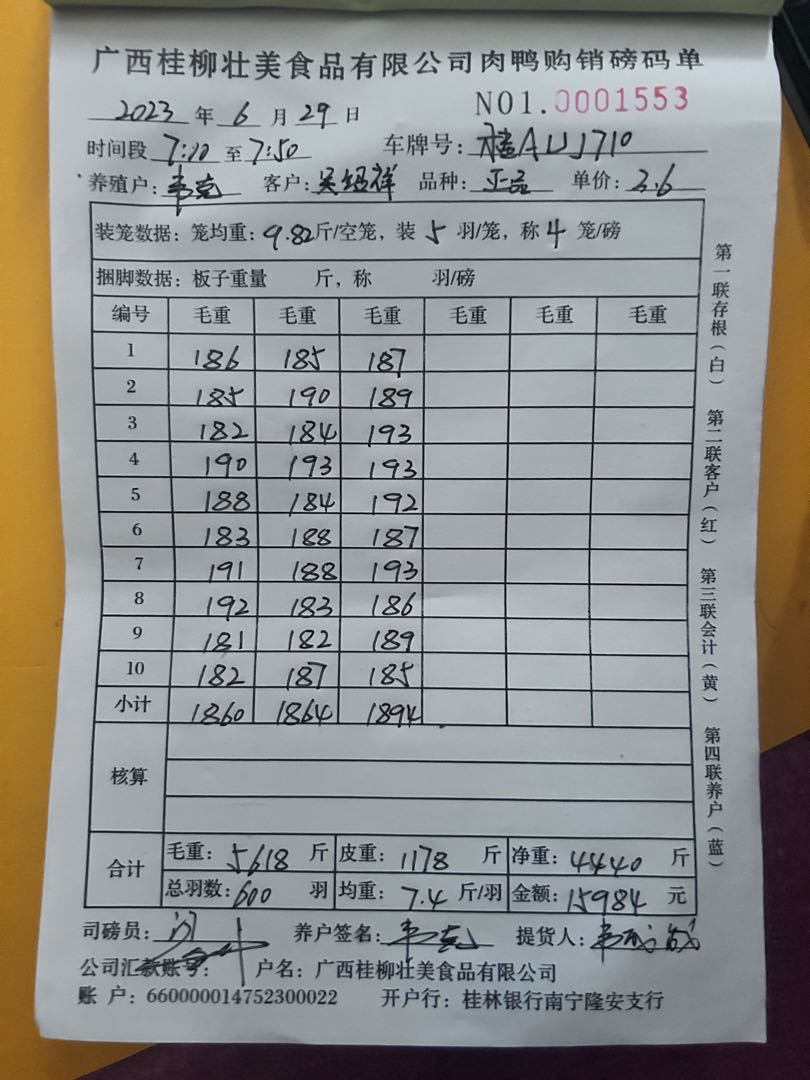 广西桂柳壮美食品有限公司肉鸭购销磅码单
2023 年 6 月 29 日 NO1.0001553
时间段 7:10 至 7:50 车牌号: 桂AUJ710
养殖户: 韦克 客户: 吴绍祥 品种: 正品 单价: 3.6
装笼数据: 笼均重: 9.82斤/空笼, 装 5 羽/笼, 称 4 笼/磅
捆脚数据: 板子重量 斤, 称 羽/磅
编号 毛重 毛重 毛重 毛重 毛重 毛重
1 186 185 187
2 185 190 189
3 182 184 193
4 190 193 193
5 188 184 192
6 183 188 187
7 191 188 193
8 192 183 186
9 181 182 189
10 182 187 185
小计 1860 1864 1894
核算
合计 毛重: 5618 斤 皮重: 1178 斤 净重: 4440 斤
总羽数: 600 羽 均重: 7.4 斤/羽 金额: 15984 元
司磅员: 养户签名: 韦克 提货人:
公司汇款账号: 户名: 广西桂柳壮美食品有限公司
账 户: 660000014752300022 开户行: 桂林银行南宁隆安支行
第一联存根(白) 第二联客户(红) 第三联会计(黄) 第四联养户(蓝)